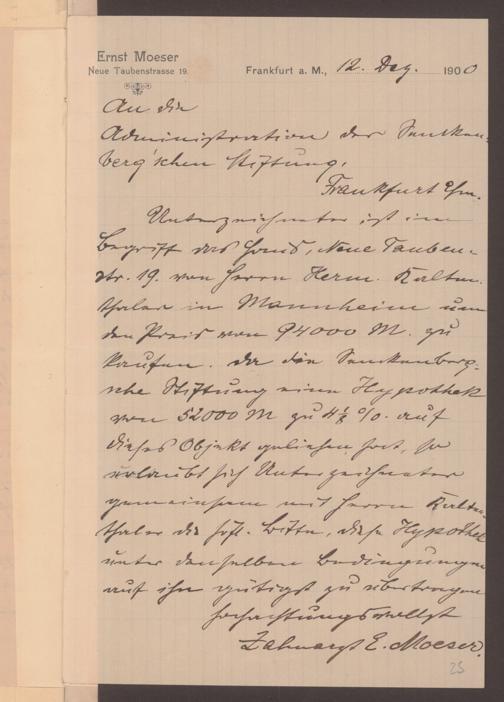 Ernst Moeser
Neue Taubenstrasse 19.
Frankfurt a. M., 12. Dez. 1900
An die
Administration der Sencken-
berg'schen Stiftung,
Frankfurt a/m.
Unterzeichneter ist im
Begriff das Haus, Neue Tauben-
str. 19. von Herrn Herm. Kalten-
thaler in Mannheim um
den Preis von 94000 M. zu
kaufen. Da die Senckenberg-
sche Stiftung eine Hypothek
von 52000 M zu 4¼ % auf
dieses Objekt geliehen hat, so
erlaubt sich Unterzeichneter
gemeinsam mit Herrn Kalten-
thaler die höfl. Bitte, diese Hypothek
unter denselben Bedingungen
auf ihn gütigst zu übertragen
Hochachtungsvollst
Zahnarzt E. Moeser.
25